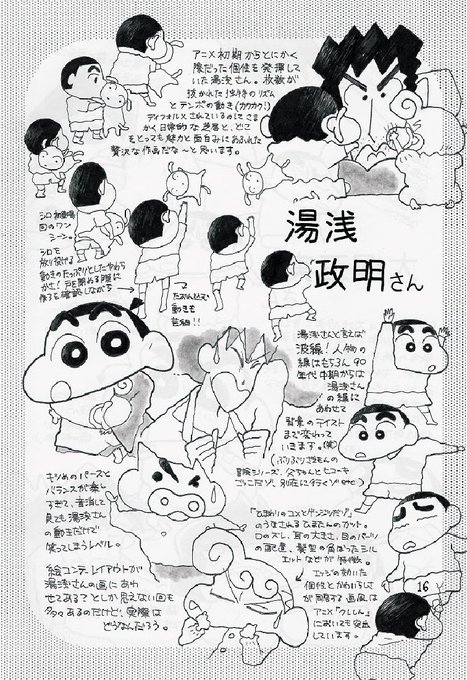 アニメ初期からとにかく
際だった個性を発揮して
いた湯浅さん。枚数が
抜かれた独特のリズム
とテンポの動き(カクカク!)
ディフォルメされているのにこま
かく日常的な芝居と、どこ
をとっても魅力と面白みにあふれた
贅沢な作画だな〜と思います。
シロ初登場
回のワン
シーン。
シロを
放り投げる
動きのたっぷりとしたやわら
かさ!戸を閉める際に
後ろを確認しながら
たおれ込む
動きも
芸細!!
湯浅
政明さん
湯浅さんと言えば
波線!人物の
線はもちろん90
年代中期からは
湯浅さん
の線に
あわせて
背景のテイスト
まで変わって
いきます。(笑)
(ぶりぶりざえもんの
冒険シリーズ、父ちゃんとヒコーキ
ごっこだゾ、別荘に行くゾ etc)
キツめのパースと
バランスが楽し
すぎて、音消して
見ても湯浅さん
の動きだけで
笑ってしまうレベル。
絵コンテ、レイアウトが
湯浅さんの画にあわ
せてある?としか思えない回も
多々あるのだけど、実際は
どうなんだろう。
『ひまわりのコスとがンジンだゾ』
のうなされるひまちゃんのカット。
口のズレ、耳の大きさ、目のパーツ
の配置、髪型の角ばったシル
エットなどが特徴。
エッジの効いた
個性とかわいらしさ
が同居する画風は
アニメ『クレしん』
においても突出
しています。
16